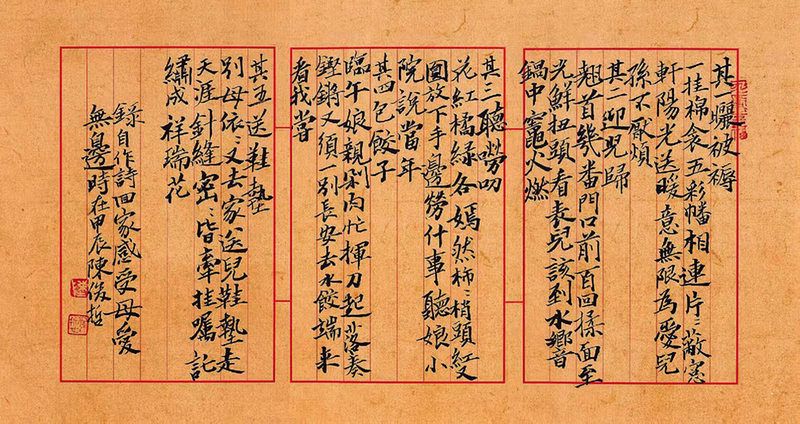 其一曬被褥
一挂棉衾五彩幡相連片〻蔽窓
軒陽光送暖意無限為愛兒
孫不厭煩
其二迎兒歸
翹首幾番門口前百回揉面至
光鮮扭頭看表兒該到水響
鍋中竈火燃
其三聽嘮叨
花紅橘綠各嫣然柿〻梢頭紅又
圓放下手邊勞什事聽娘小
院說當年
其四包餃子
臨午娘親剁肉忙揮刀起落奏
鏗鏘又須一別長安去水餃端来
看我嘗
其五送鞋墊
別母依〻又去家送兒鞋墊走
天涯針縫密〻皆牽挂囑託
繡成祥瑞花
錄自作詩回家感受母愛
無邊時在甲辰陳俊哲